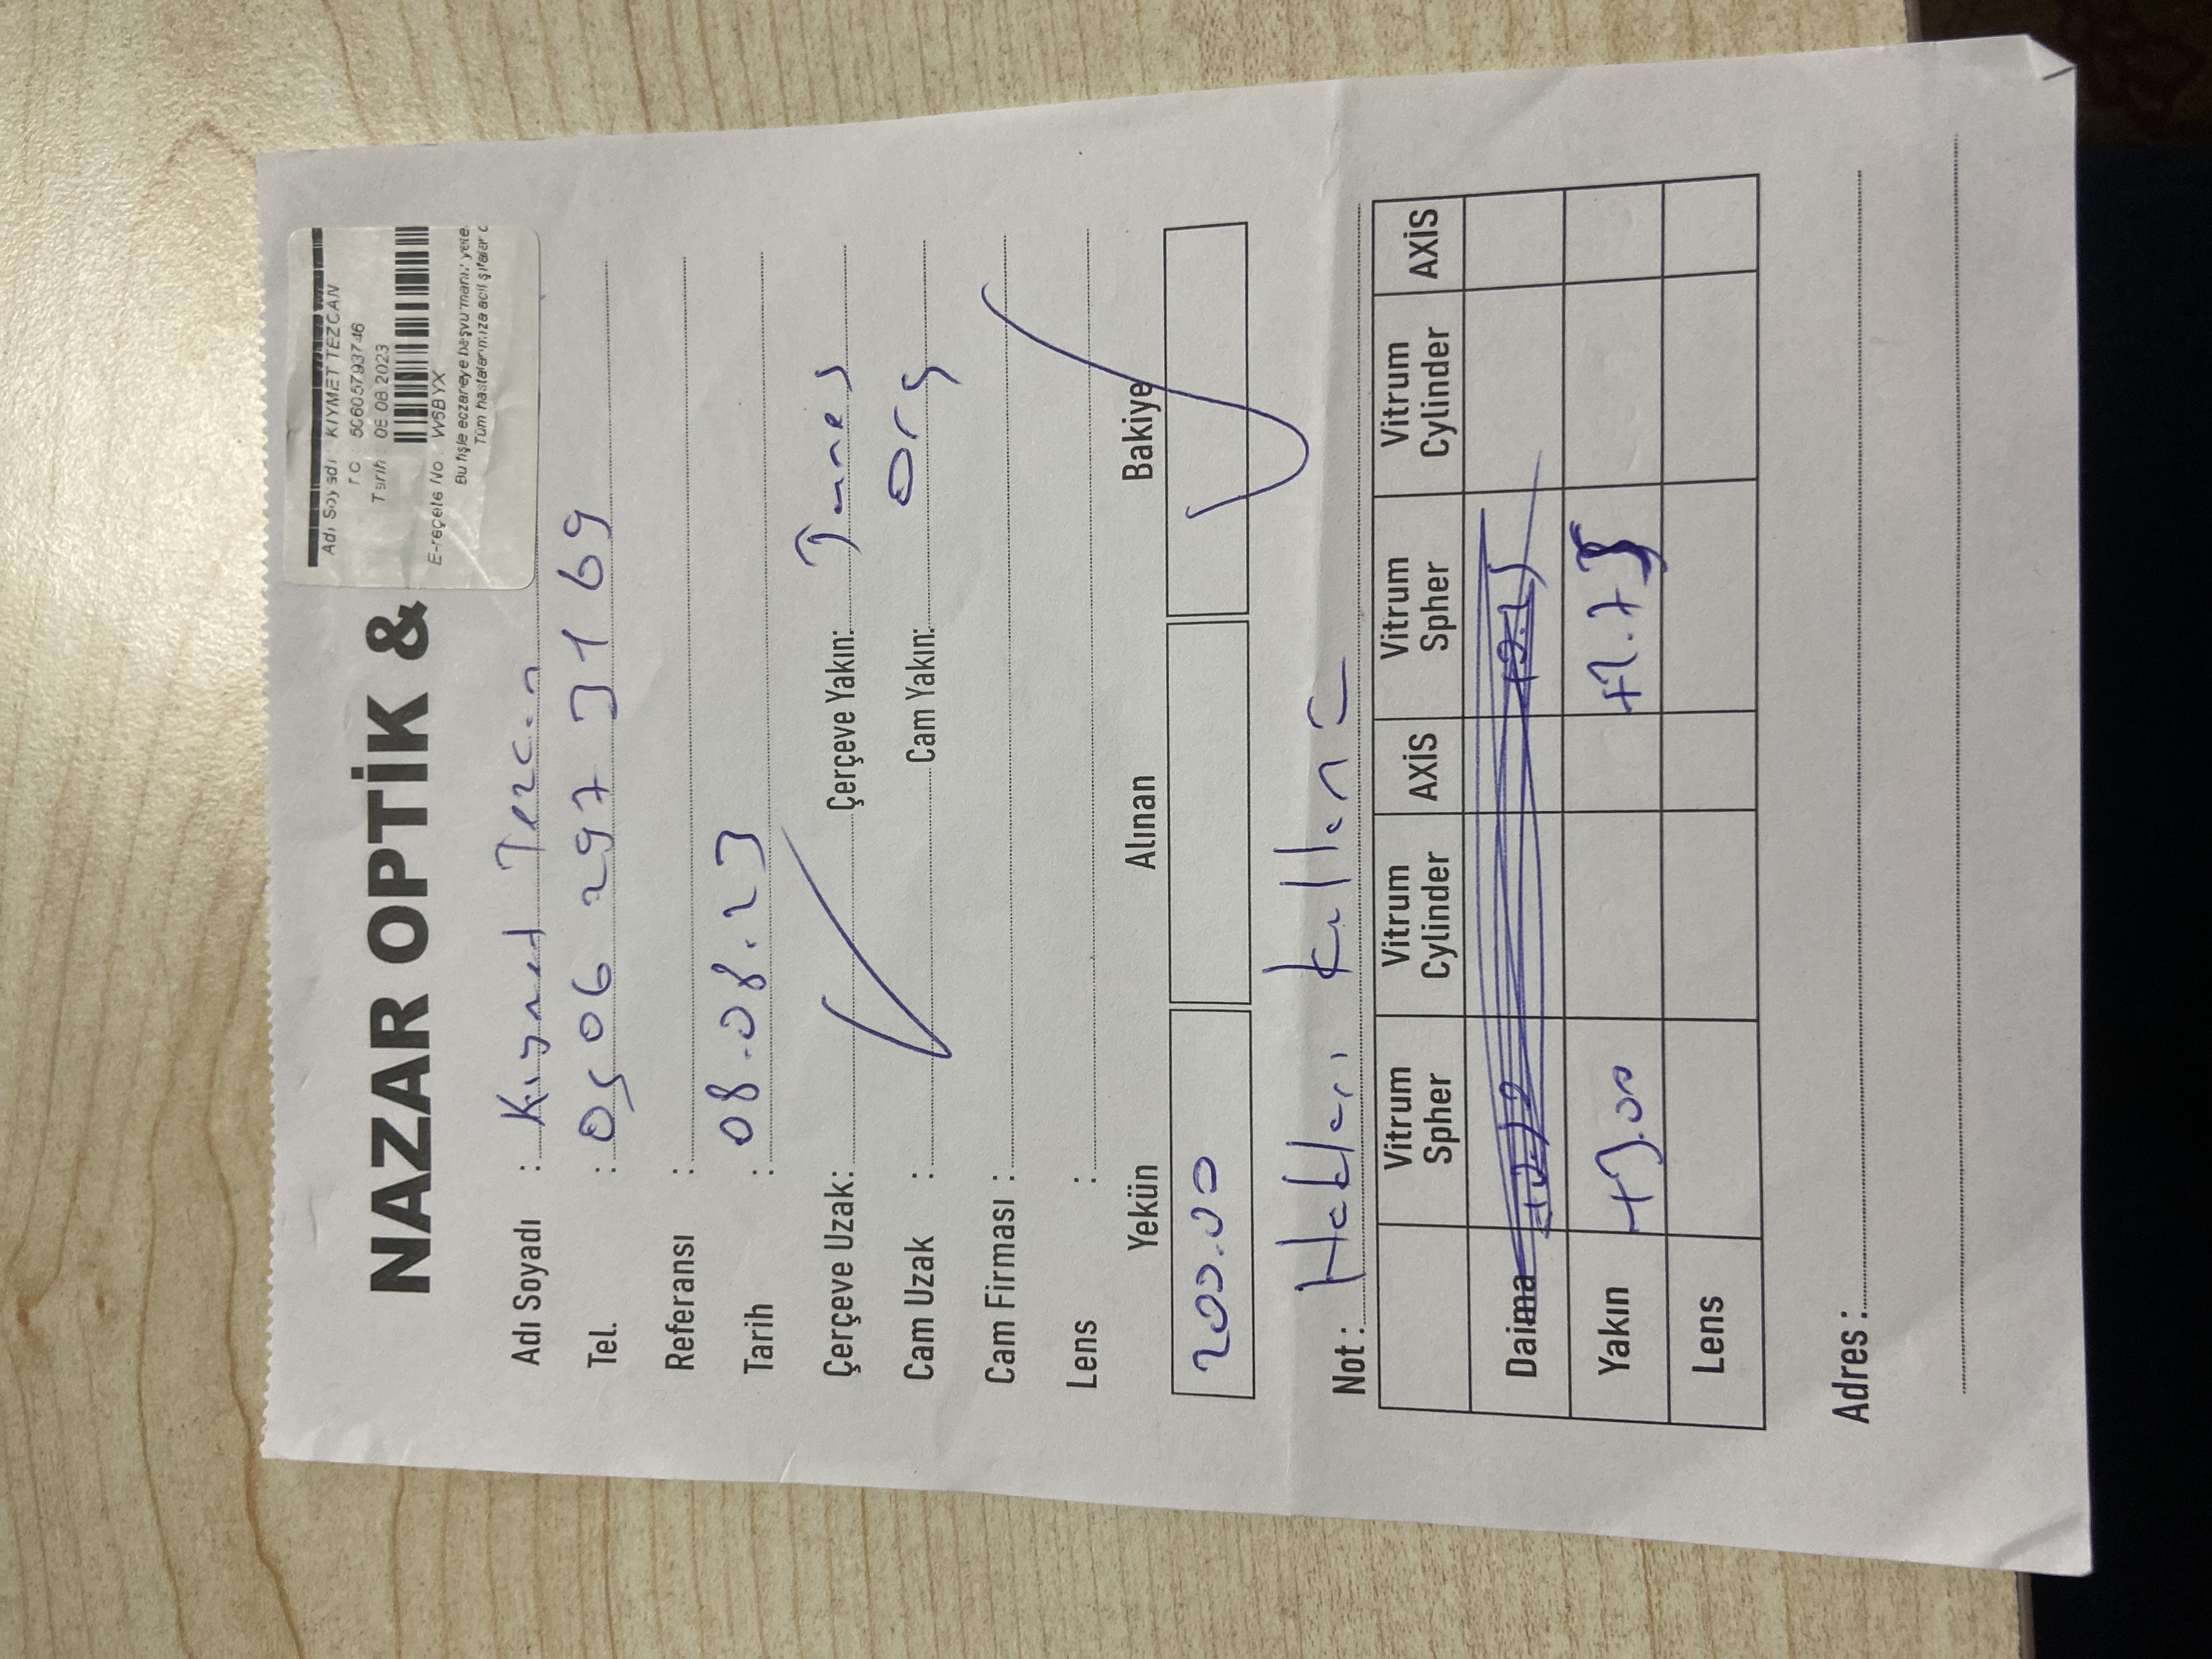 NAZAR OPTİK &
Adı Soyadı : KIYMET TEZCAN
T.C : 50605793746
Tarih : 08.08.2023
E-reçete No : W6BYX
Bu fişle eczaneye başvurmanız yete
Tüm hastalarımıza acil şifalar d
Adı Soyadı : Kıymet Tezcan
Tel. : 0506 297 31 69
Referansı :
Tarih : 08.08.23
Çerçeve Uzak: Çerçeve Yakın:
Cam Uzak : Cam Yakın: Org
Cam Firması :
Lens :
Yekün Alınan Bakiye
200.00
Not : Hakları
Vitrum Spher Vitrum Cylinder AXİS Vitrum Spher Vitrum Cylinder AXİS
Daima
Yakın +3.00
Lens
Adres :